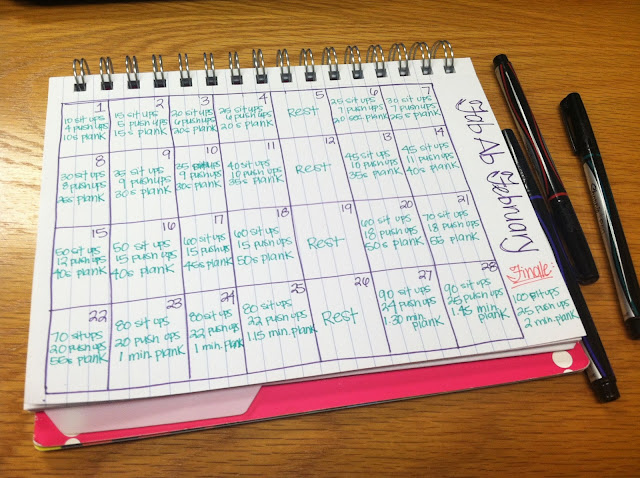 Fab Ab February
1
10 sit ups
4 push ups
10s plank
2
15 sit ups
5 push ups
15s plank
3
20 sit ups
6 push ups
20s plank
4
25 sit ups
6 push ups
20s plank
5
Rest
6
25 sit ups
7 push ups
20 sec plank
7
30 sit ups
7 push ups
25s plank
8
30 sit ups
8 push ups
25s plank
9
35 sit ups
9 push ups
30s plank
10
35 situps
9 push ups
35s plank
11
40 sit ups
10 push ups
35s plank
12
Rest
13
45 sit ups
10 push ups
35s plank
14
45 sit ups
11 push ups
40s plank
15
50 sit ups
12 push ups
40s plank
16
50 sit ups
15 push ups
40s plank
17
60 sit ups
15 push ups
45s plank
18
60 sit ups
15 push ups
50s plank
19
Rest
20
60 sit ups
18 push ups
50s plank
21
70 sit ups
18 push ups
55 plank
22
70 sit ups
20 push ups
55s plank
23
80 sit ups
20 push ups
1 min. plank
24
80 sit ups
22 push ups
1 min. plank
25
80 sit ups
22 push ups
1.15 min. plank
26
Rest
27
90 sit ups
24 push ups
1.30 min.
plank
28
90 sit ups
25 push ups
1.45 min.
plank
Finale:
100 sit ups
25 push ups
2 min. plank